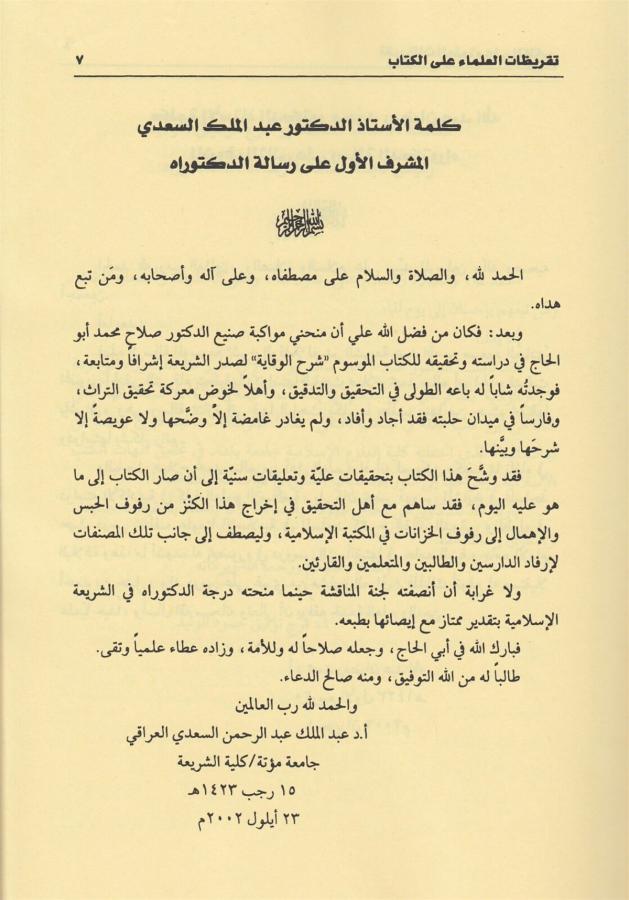 تقريظات العلماء على الكتاب ٧
كلمة الأستاذ الدكتور عبد الملك السعدي
المشرف الأول على رسالة الدكتوراه
بسم الله الرحمن الرحيم
الحمد لله، والصلاة والسلام على مصطفاه، وعلى آله وأصحابه، ومَن تبع
هداه.
وبعد: فكان من فضل الله علي أن منحني مواكبة صنيع الدكتور صلاح محمد أبو
الحاج في دراسته وتحقيقه للكتاب الموسوم «شرح الوقاية» لصدر الشريعة إشرافاً ومتابعة،
فوجدتُه شاباً له باعه الطولى في التحقيق والتدقيق، وأهلاً لخوض معركة تحقيق التراث،
وفارساً في ميدان حلبته فقد أجاد وأفاد، ولم يغادر غامضة إلاّ وضَّحها ولا عويصةً إلا
شرحَها وبيَّنها.
فقد وشَّحَ هذا الكتاب بتحقيقات عليّة وتعليقات سنيّة إلى أن صار الكتاب إلى ما
هو عليه اليوم، فقد ساهم مع أهل التحقيق في إخراج هذا الكَنْز من رفوف الحبس
والإهمال إلى رفوف الخزانات في المكتبة الإسلامية، وليصطف إلى جانب تلك المصنفات
لإرفاد الدارسين والطالبين والمتعلمين والقارئين.
ولا غرابة أن أنصفته لجنة المناقشة حينما منحته درجة الدكتوراه في الشريعة
الإسلامية بتقدير ممتاز مع إيصائها بطبعه.
فبارك الله في أبي الحاج، وجعله صلاحاً له وللأمة، وزاده عطاء علمياً وتقى.
طالباً له من الله التوفيق، ومنه صالح الدعاء.
والحمد لله رب العالمين
أ.د عبد الملك عبد الرحمن السعدي العراقي
جامعة مؤتة/كلية الشريعة
١٥ رجب ١٤٢٣هـ
٢٣ أيلول ٢٠٠٢م